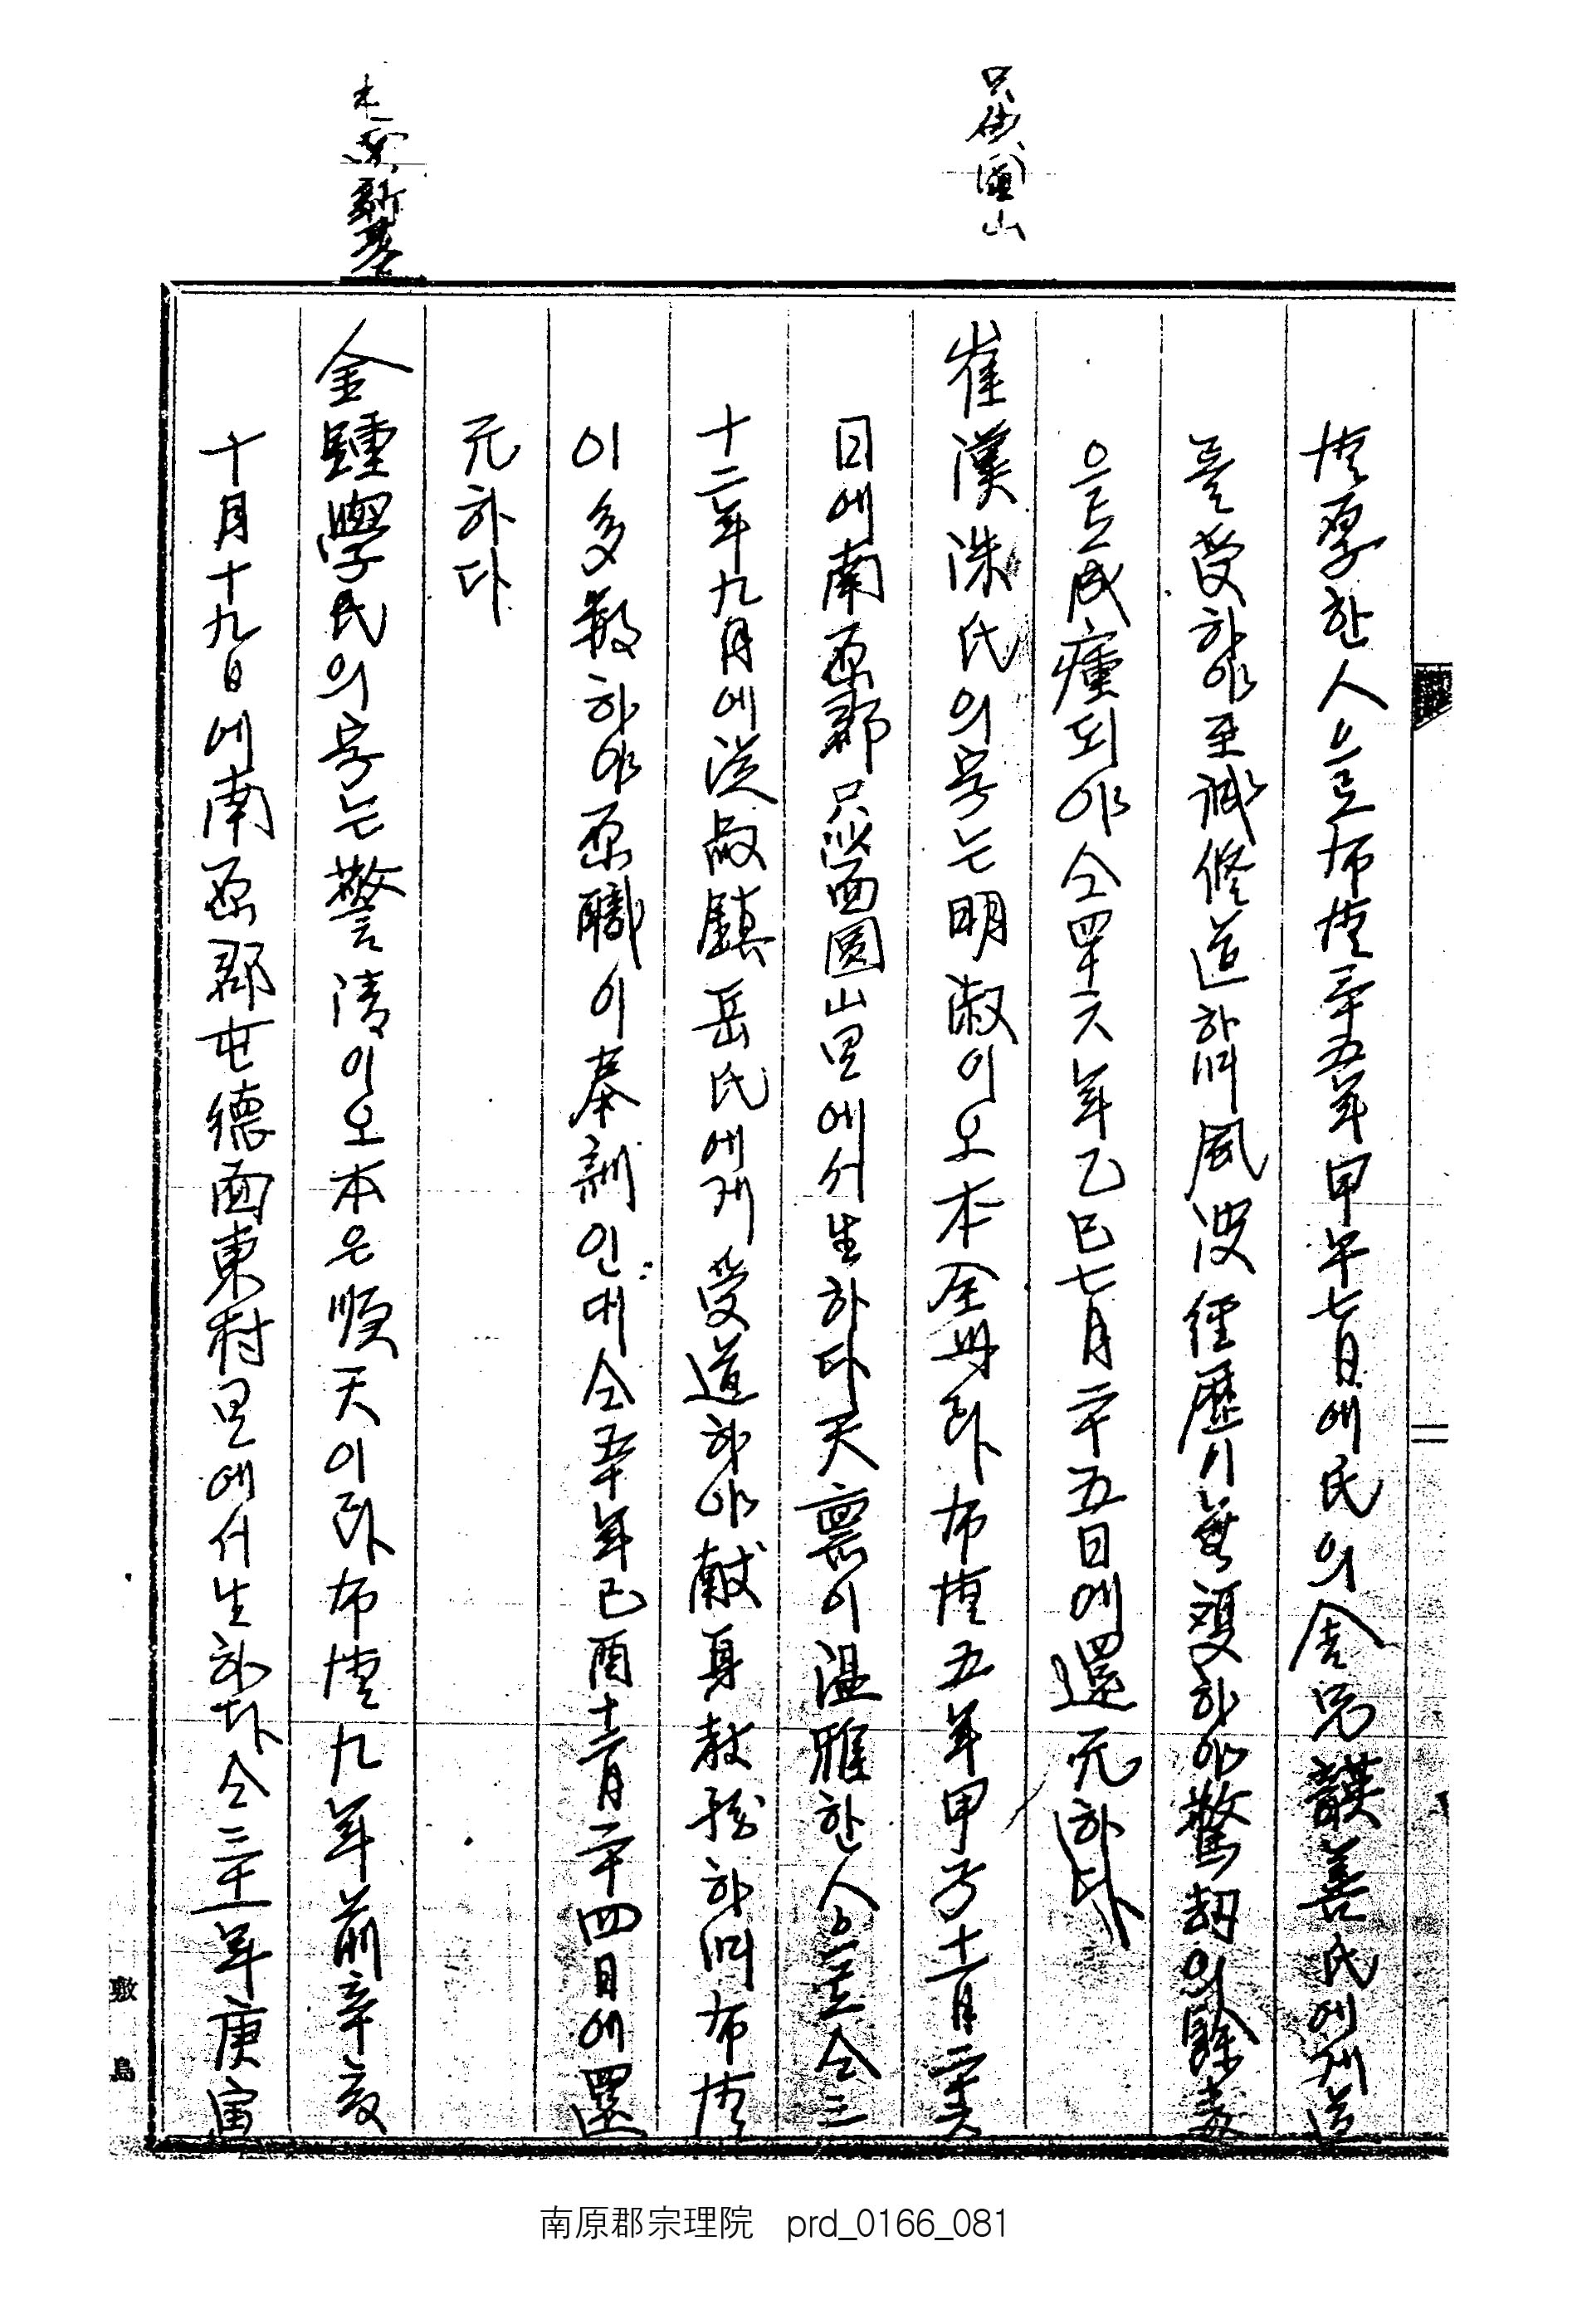 只沙圓山
朩面新基
性厚한人으로布德三十五年甲午七月에氏의舍兄 善氏에게道
를受하야至誠修道하며風波經歷이無雙하야驚刼의餘毒
으로成瘇되야仝四十六年乙巳七月二十五日에還元하다
崔漢洙氏의号는明淑이오本全州라布德五年甲子十一月二十六
日에南原郡只沙面圓山里에서生하다天禀이温雅한人으로仝三
十二年九月에從叔鎭岳氏에게受道하야献身敎務하며布德
이多數하야原職이奉訓인대仝五十年己酉十二月二十四日에還
元하다
金鍾學氏의号는警淸이오本은順天이라布德九年前辛亥
十月十九日에南原郡屯德面東村里에서生하다仝三十一年庚寅
敷島
南原郡宗理院 prd_0166_081